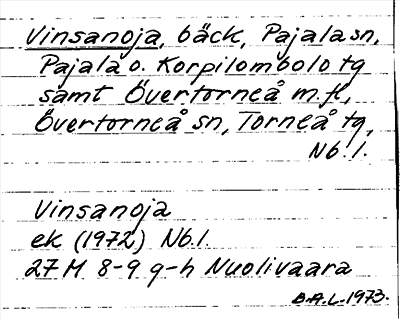 Vinsanoja, bäck, Pajala sn,
Pajala o. Korpilombolo tg
samt Övertorneå m.fl,
Övertorneå sn, Torneå tg,
Nb.l.
Vinsanoja
ek (1972) Nb.l.
27 M 8-9 g-h Nuolivaara
B.A.L. 1973.